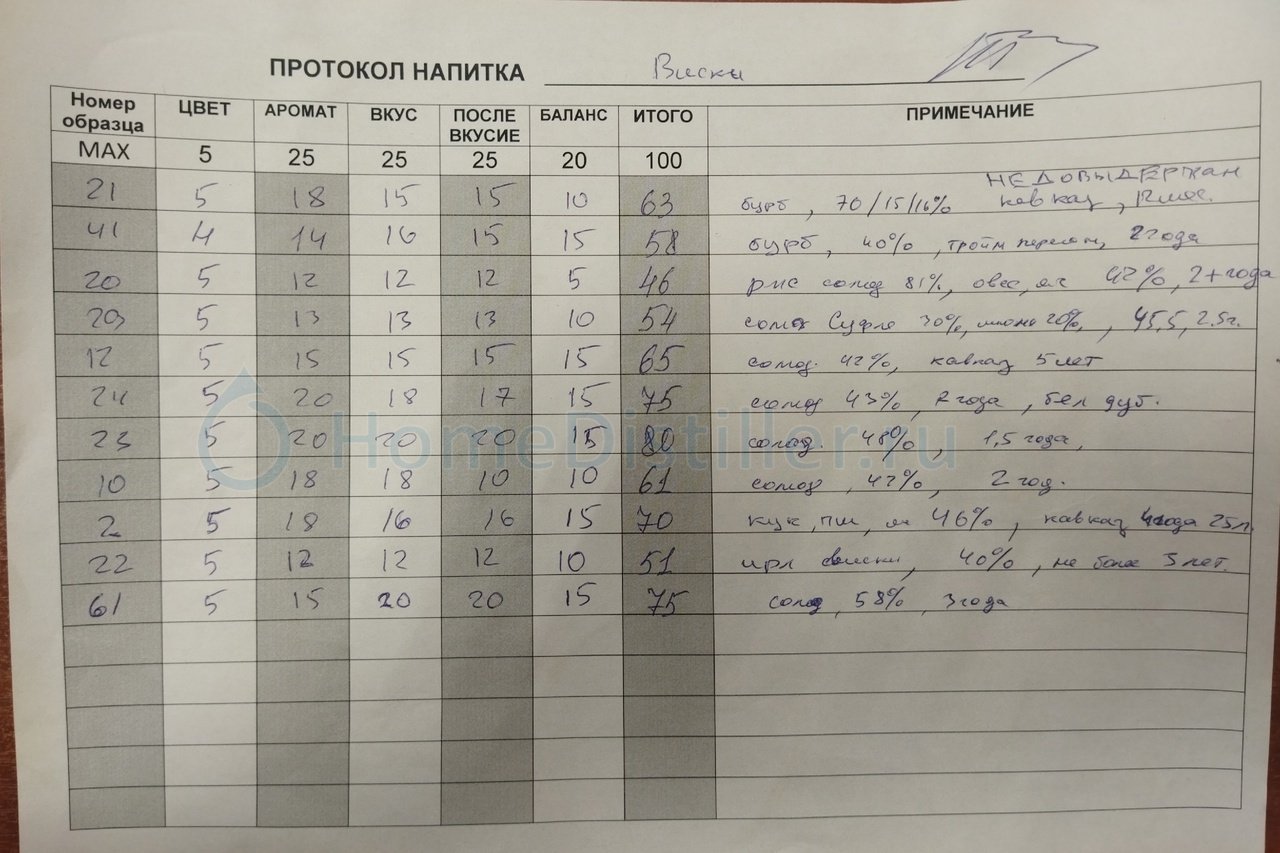 ПРОТОКОЛ НАПИТКА Виски
Номер образца ЦВЕТ АРОМАТ ВКУС ПОСЛЕ ВКУСИЕ БАЛАНС ИТОГО ПРИМЕЧАНИЕ
MAX 5 25 25 25 20 100
НЕДОВЫДЕРЖАН
21 5 18 15 15 10 63 бурб, 70/15/16% кавказ,
41 4 14 16 15 15 58 бурб, 40%, тройн перегон, 2 года
20 5 12 12 12 5 46 рис солод 81%, овес, яч 42%, 2+года
29 5 13 13 13 10 54 солод Суфле 30%, 20%, 45,5, 2.5г.
12 5 15 15 15 15 65 солод. 42%, кавказ 5 лет
24 5 20 18 17 15 75 солод 43%, 2 года, бел дуб.
23 5 20 20 20 15 80 солод. 48%, 1,5 года,
10 5 18 18 10 10 61 солод, 42%, 2 год.
2 5 18 16 16 15 70 кук, пш, яч 46%, кавказ 4 года 25л
22 5 12 12 12 10 51 ирл виски, 40%, не более 3 лет.
61 5 15 20 20 15 75 солод, 58%, 3 года
HomeDistiller.ru